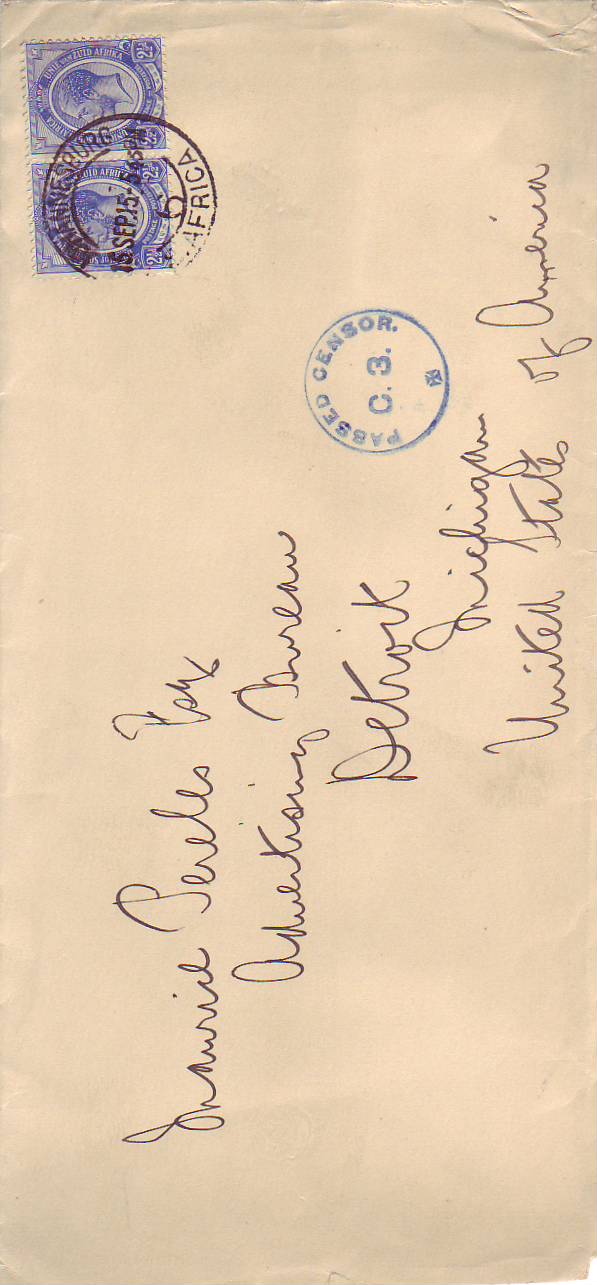 UNIE VAN ZUID AFRIKA
2½d 2½d
UNIE VAN ZUID AFRIKA
2½d 2½d
JOHANNESBURG
15 SEP. 15
6
AFRICA
PASSED CENSOR.
C. 3.
Maurice Pereles Esq
Advertising Bureau
Detroit
Michigan
United States of America